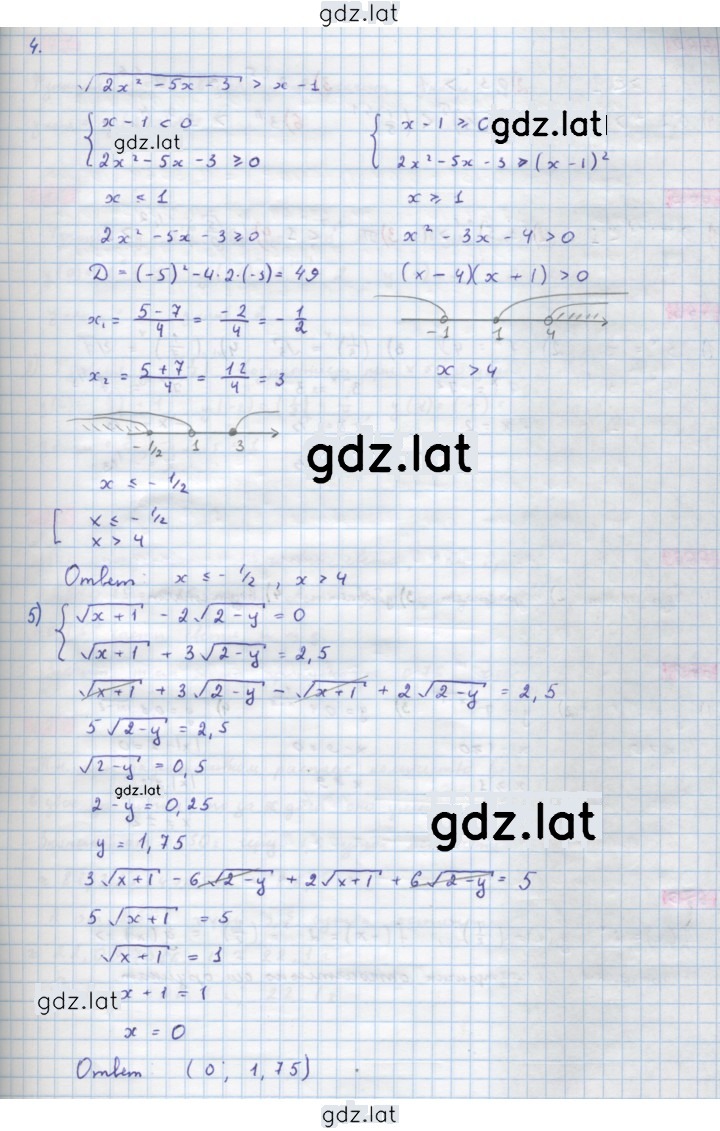 gdz.lat
4.
√(2x² - 5x - 3) > x - 1
{ x - 1 < 0
gdz.lat
2x² - 5x - 3 ≥ 0
x < 1
2x² - 5x - 3 ≥ 0
D = (-5)² - 4·2·(-3) = 49
x₁ = (5 - 7)/4 = -2/4 = -1/2
x₂ = (5 + 7)/4 = 12/4 = 3
-1/2 1 3
x ≤ -1/2
{ x - 1 ≥ 0
gdz.lat
2x² - 5x - 3 > (x - 1)²
x ≥ 1
x² - 3x - 4 > 0
(x - 4)(x + 1) > 0
-1 1 4
x > 4
gdz.lat
[ x ≤ -1/2
x > 4
Ответ x ≤ -1/2 , x > 4
5) { √(x+1) - 2√(2-y) = 0
√(x+1) + 3√(2-y) = 2,5
√(x+1) + 3√(2-y) - √(x+1) + 2√(2-y) = 2,5
5√(2-y) = 2,5
√(2-y) = 0,5
gdz.lat
2 - y = 0,25
gdz.lat
y = 1,75
3√(x+1) - 6√(2-y) + 2√(x+1) + 6√(2-y) = 5
5√(x+1) = 5
√(x+1) = 1
gdz.lat
x + 1 = 1
x = 0
Ответ (0; 1,75)
gdz.lat